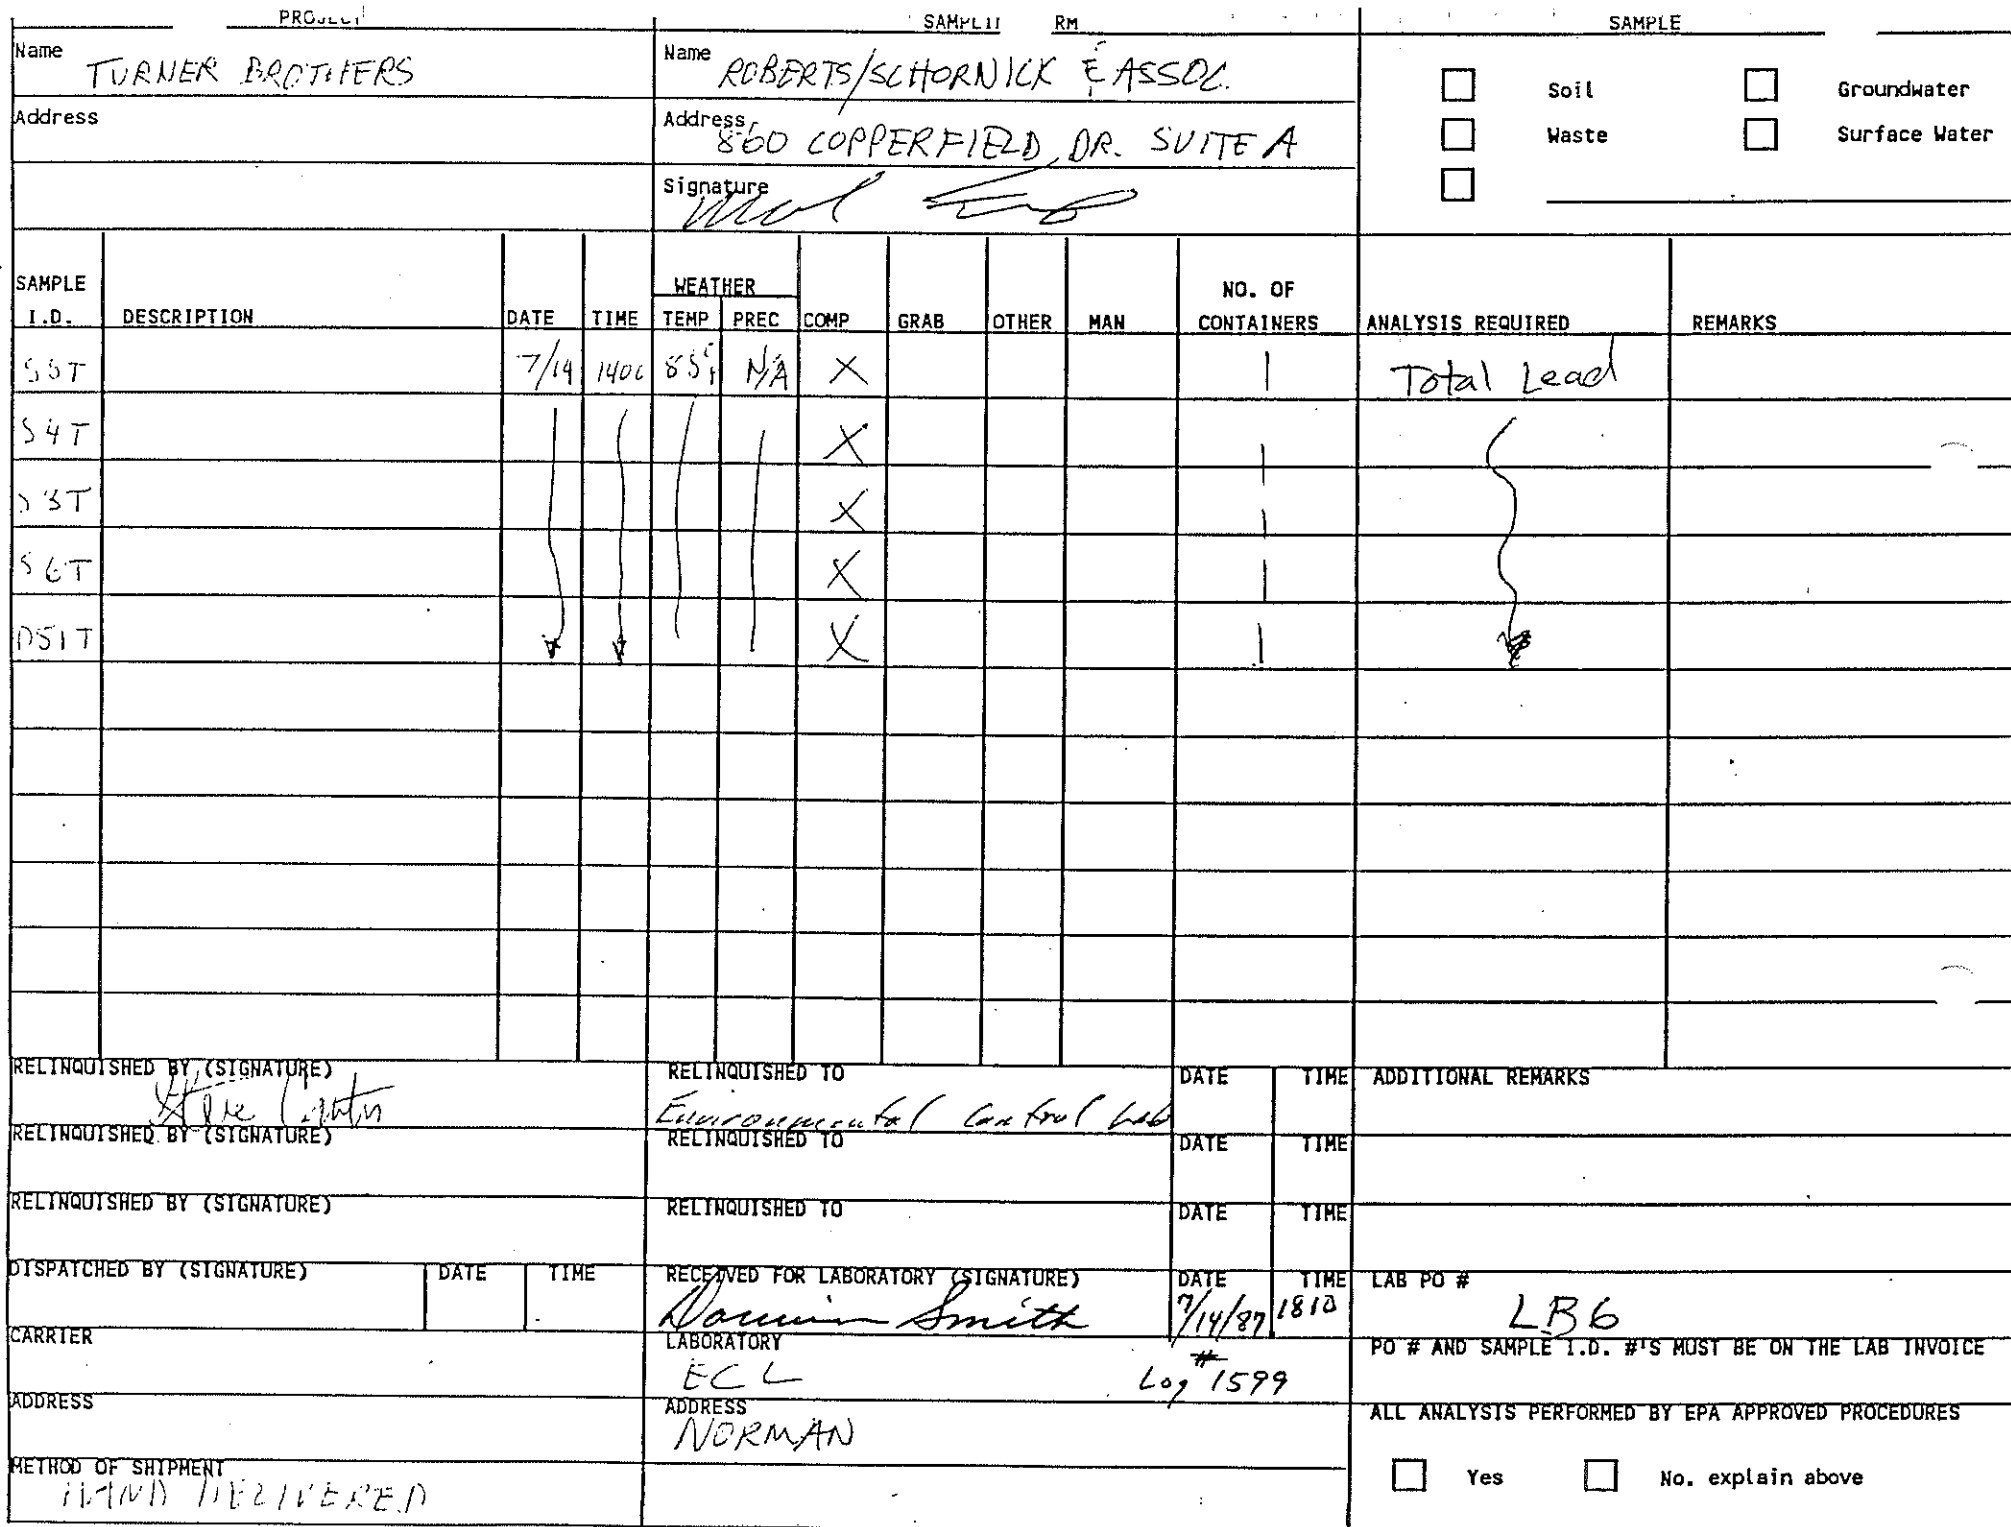 PROJECT
SAMPLE
Name TURNER BROTHERS
Name ROBERTS/SCHORNICK & ASSOC.
Address
Address 860 COPPERFIELD, DR. SUITE A
Signature
Soil
Groundwater
Waste
Surface Water
SAMPLE I.D.
DESCRIPTION
DATE
TIME
WEATHER
TEMP
PREC
COMP
GRAB
OTHER
MAN
NO. OF CONTAINERS
ANALYSIS REQUIRED
REMARKS
S5T 7/14 1400 85°F N/A X 1 Total Lead
S4T X 1
S3T X 1
S6T X 1
DS1T X 1
RELINQUISHED BY (SIGNATURE)
RELINQUISHED TO
Environmental Control Lab
DATE TIME
ADDITIONAL REMARKS
RELINQUISHED BY (SIGNATURE)
RELINQUISHED TO
DATE TIME
RELINQUISHED BY (SIGNATURE)
RELINQUISHED TO
DATE TIME
DISPATCHED BY (SIGNATURE)
DATE TIME
RECEIVED FOR LABORATORY (SIGNATURE)
Smith
DATE 7/14/87
TIME 1810
LAB PO #
LB6
CARRIER
LABORATORY
ECL
Log #1599
PO # AND SAMPLE I.D. #'S MUST BE ON THE LAB INVOICE
ADDRESS
ADDRESS
NORMAN
ALL ANALYSIS PERFORMED BY EPA APPROVED PROCEDURES
METHOD OF SHIPMENT
HAND DELIVERED
Yes
No. explain above